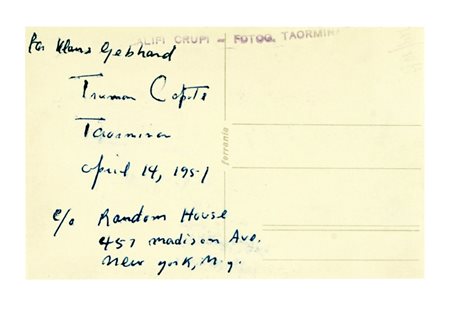 For Klaus Gebhard
ALIFI CRUPI - FOTOG. TAORMINA
Truman Capote
Taormina
April 14, 1951
c/o Random House
457 Madison Ave.
New York, N.Y.
ferrania